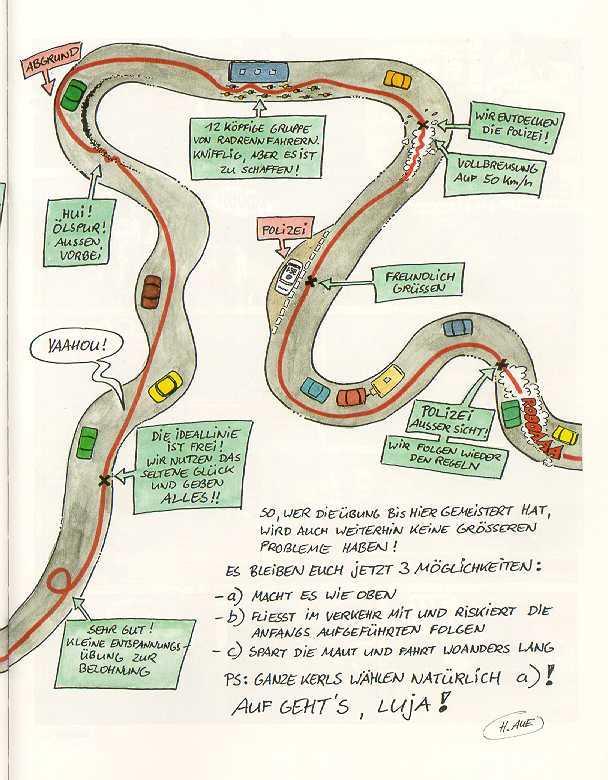 ABGRUND
12 KÖPFIGE GRUPPE
VON RADRENNFAHRERN.
KNIFFLIG, ABER ES IST
ZU SCHAFFEN!
WIR ENTDECKEN
DIE POLIZEI!
VOLLBREMSUNG
AUF 50 Km/h
HUI!
ÖLSPUR!
AUSSEN
VORBEI
POLIZEI
FREUNDLICH
GRÜSSEN
YAAHOU!
POLIZEI
AUSSER SICHT!
WIR FOLGEN WIEDER
DEN REGELN
ROOOAAR
DIE IDEALLINIE
IST FREI!
WIR NUTZEN DAS
SELTENE GLÜCK
UND GEBEN
ALLES!!
SEHR GUT!
KLEINE ENTSPANNUNGS-
ÜBUNG ZUR
BELOHNUNG
SO, WER DIE ÜBUNG BIS HIER GEMEISTERT HAT,
WIRD AUCH WEITERHIN KEINE GRÖSSEREN
PROBLEME HABEN!
ES BLEIBEN EUCH JETZT 3 MÖGLICHKEITEN:
- a) MACHT ES WIE OBEN
- b) FLIESST IM VERKEHR MIT UND RISKIERT DIE
ANFANGS AUFGEFÜHRTEN FOLGEN
- c) SPART DIE MAUT UND FAHRT WOANDERS LANG
PS: GANZE KERLS WÄHLEN NATÜRLICH a)!
AUF GEHT'S, LUJA!
H. AUE